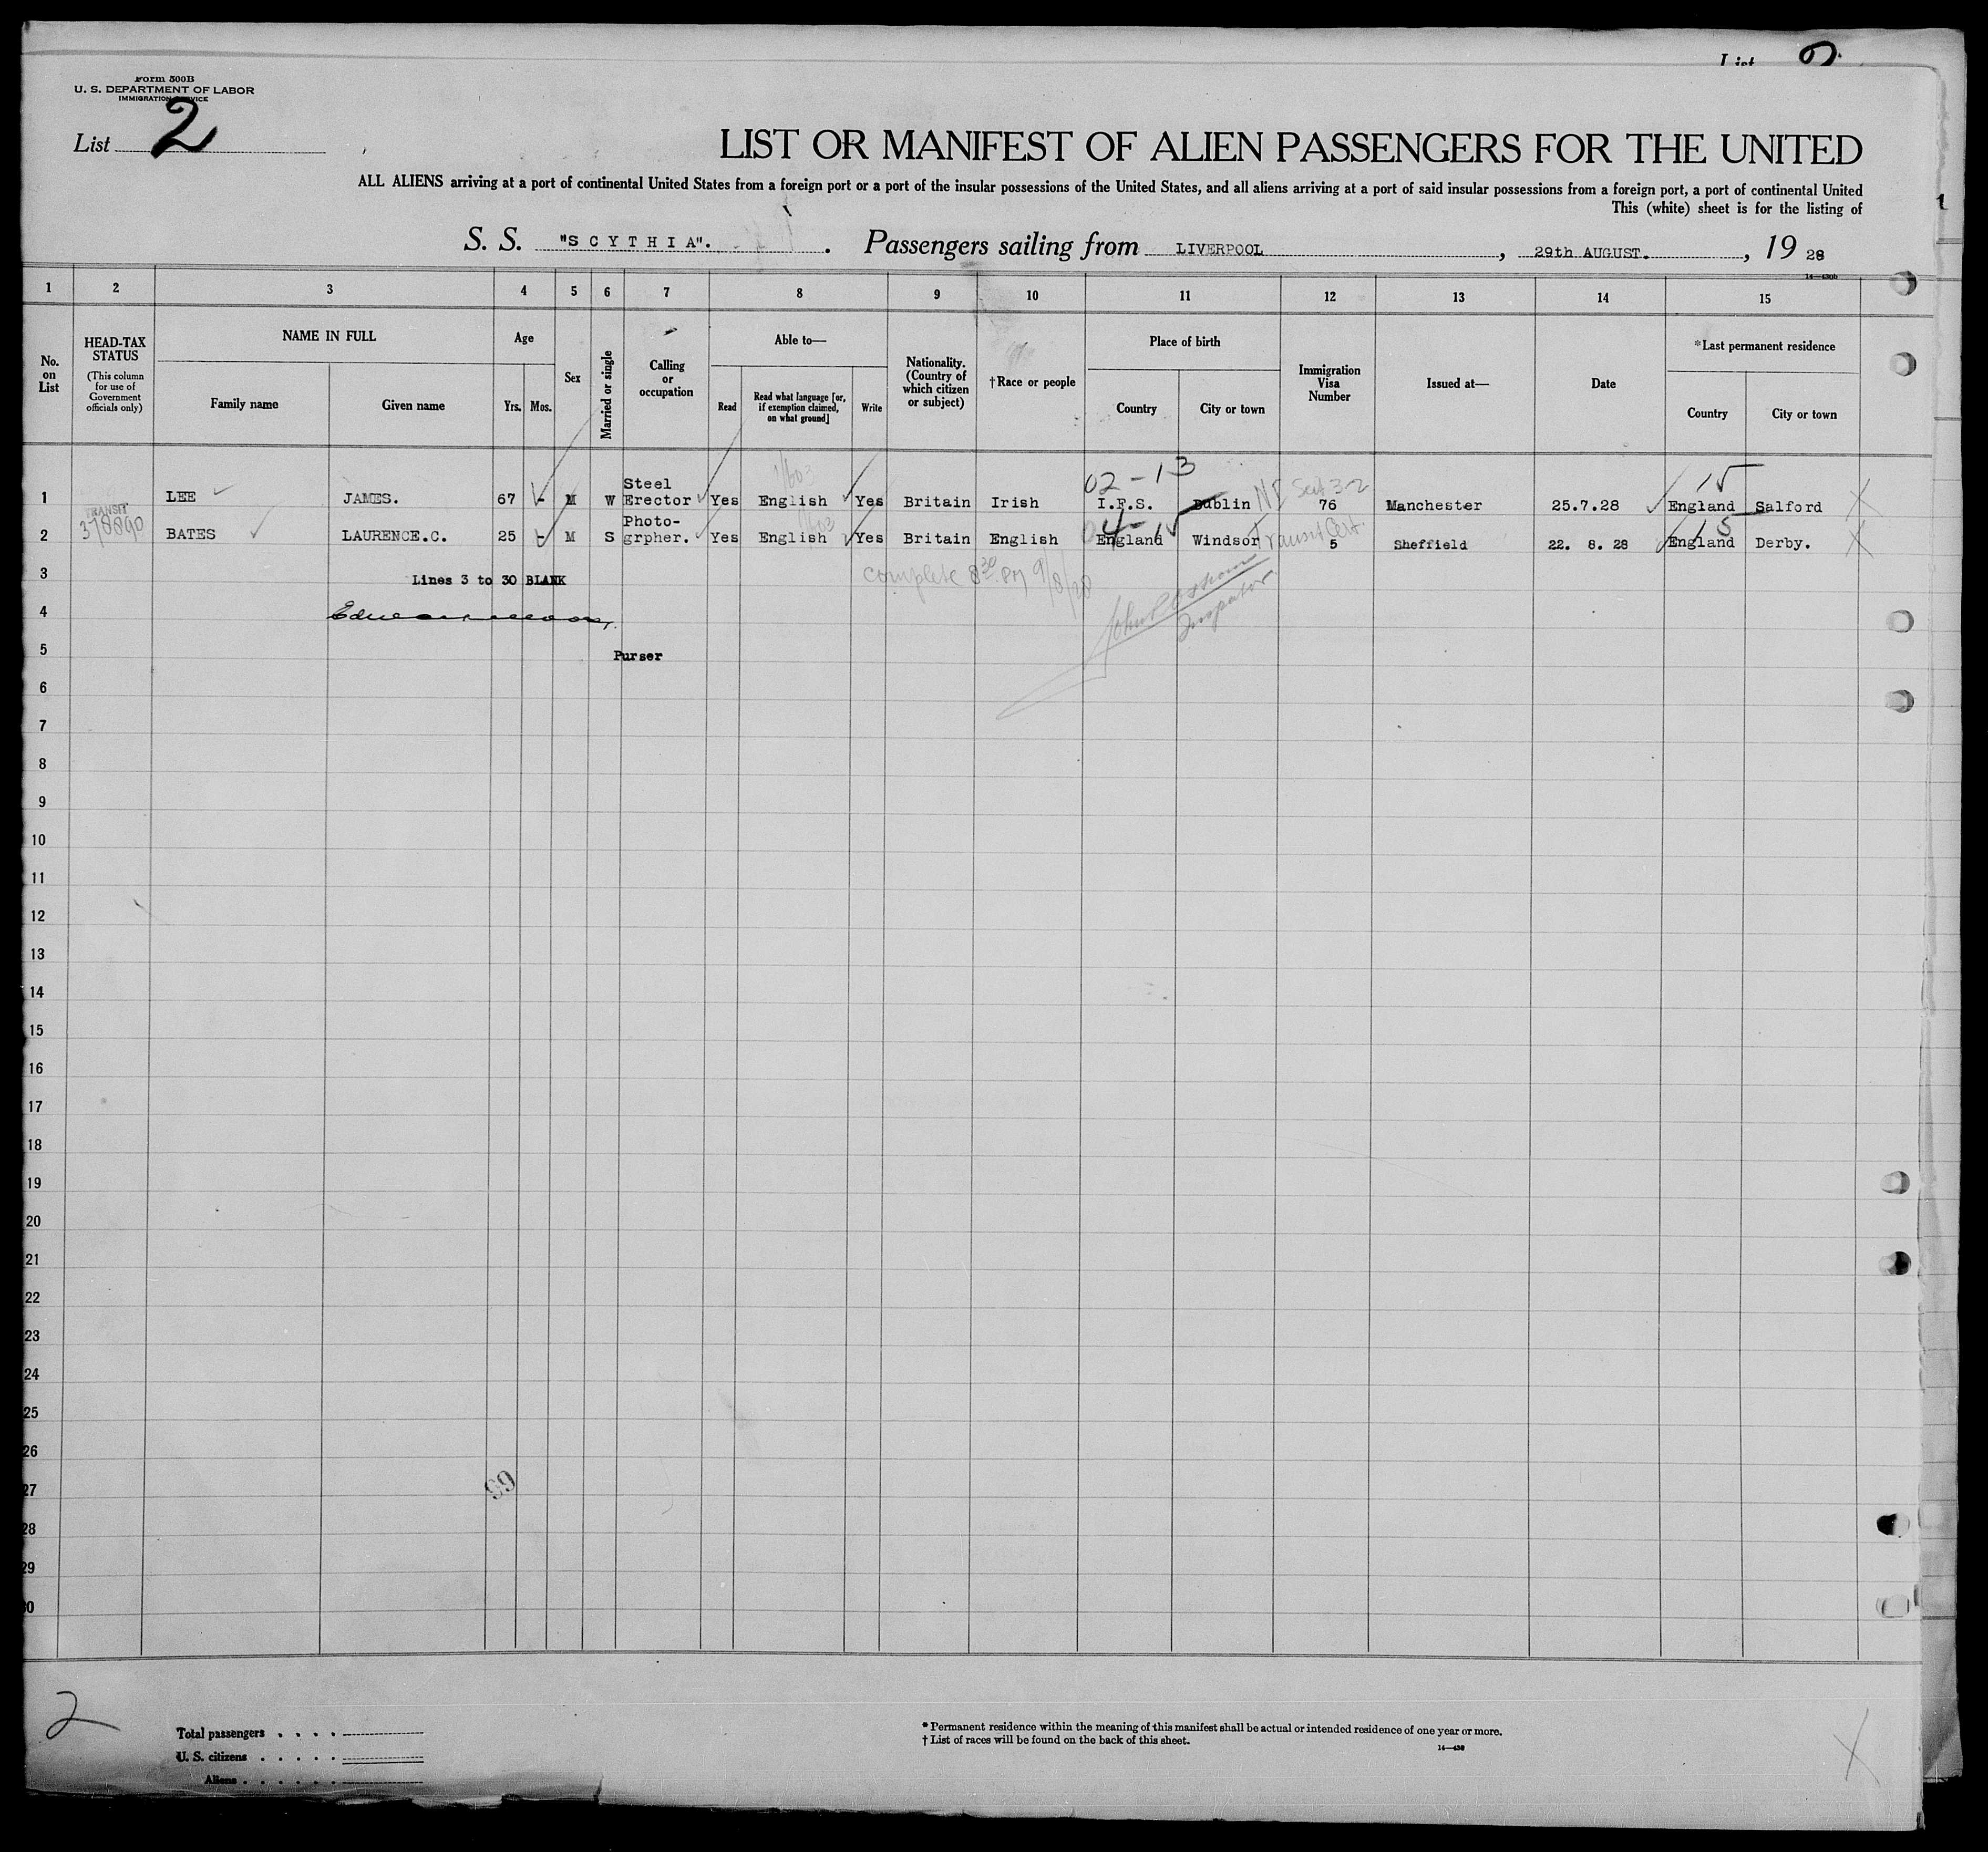 List
Form 500B
U. S. DEPARTMENT OF LABOR
IMMIGRATION SERVICE
List 2
LIST OR MANIFEST OF ALIEN PASSENGERS FOR THE UNITED
ALL ALIENS arriving at a port of continental United States from a foreign port or a port of the insular possessions of the United States, and all aliens arriving at a port of said insular possessions from a foreign port, a port of continental United
This (white) sheet is for the listing of
S. S. "S C Y T H I A". . Passengers sailing from LIVERPOOL , 29th AUGUST. , 19 28
14—430b
1 2 3 4 5 6 7 8 9 10 11 12 13 14 15
No. on List
HEAD-TAX STATUS
(This column for use of Government officials only)
NAME IN FULL
Family name Given name
Age
Yrs. Mos.
Sex
Married or single
Calling or occupation
Able to—
Read
Read what language [or, if exemption claimed, on what ground]
Write
Nationality. (Country of which citizen or subject)
†Race or people
Place of birth
Country City or town
Immigration Visa Number
Issued at—
Date
*Last permanent residence
Country City or town
02-13 15
1 LEE JAMES. 67 - M W Steel Erector Yes English Yes Britain Irish I.F.S. Dublin 76 Manchester 25.7.28 England Salford
TRANSIT
378890
04-15 Transit Cert. 15
2 BATES LAURENCE.C. 25 - M S Photo-grpher. Yes English Yes Britain English England Windsor 5 Sheffield 22. 8. 28 England Derby.
3 Lines 3 to 30 BLANK
complete 8 30 PM 9/8/28
Inspector
4
5 Purser
6
7
8
9
10
11
12
13
14
15
16
17
18
19
20
21
22
23
24
25
26
27
99
28
29
30
2
Total passengers . . . .
U. S. citizens . . . . .
Aliens . . . . . .
* Permanent residence within the meaning of this manifest shall be actual or intended residence of one year or more.
† List of races will be found on the back of this sheet.
14—430
X